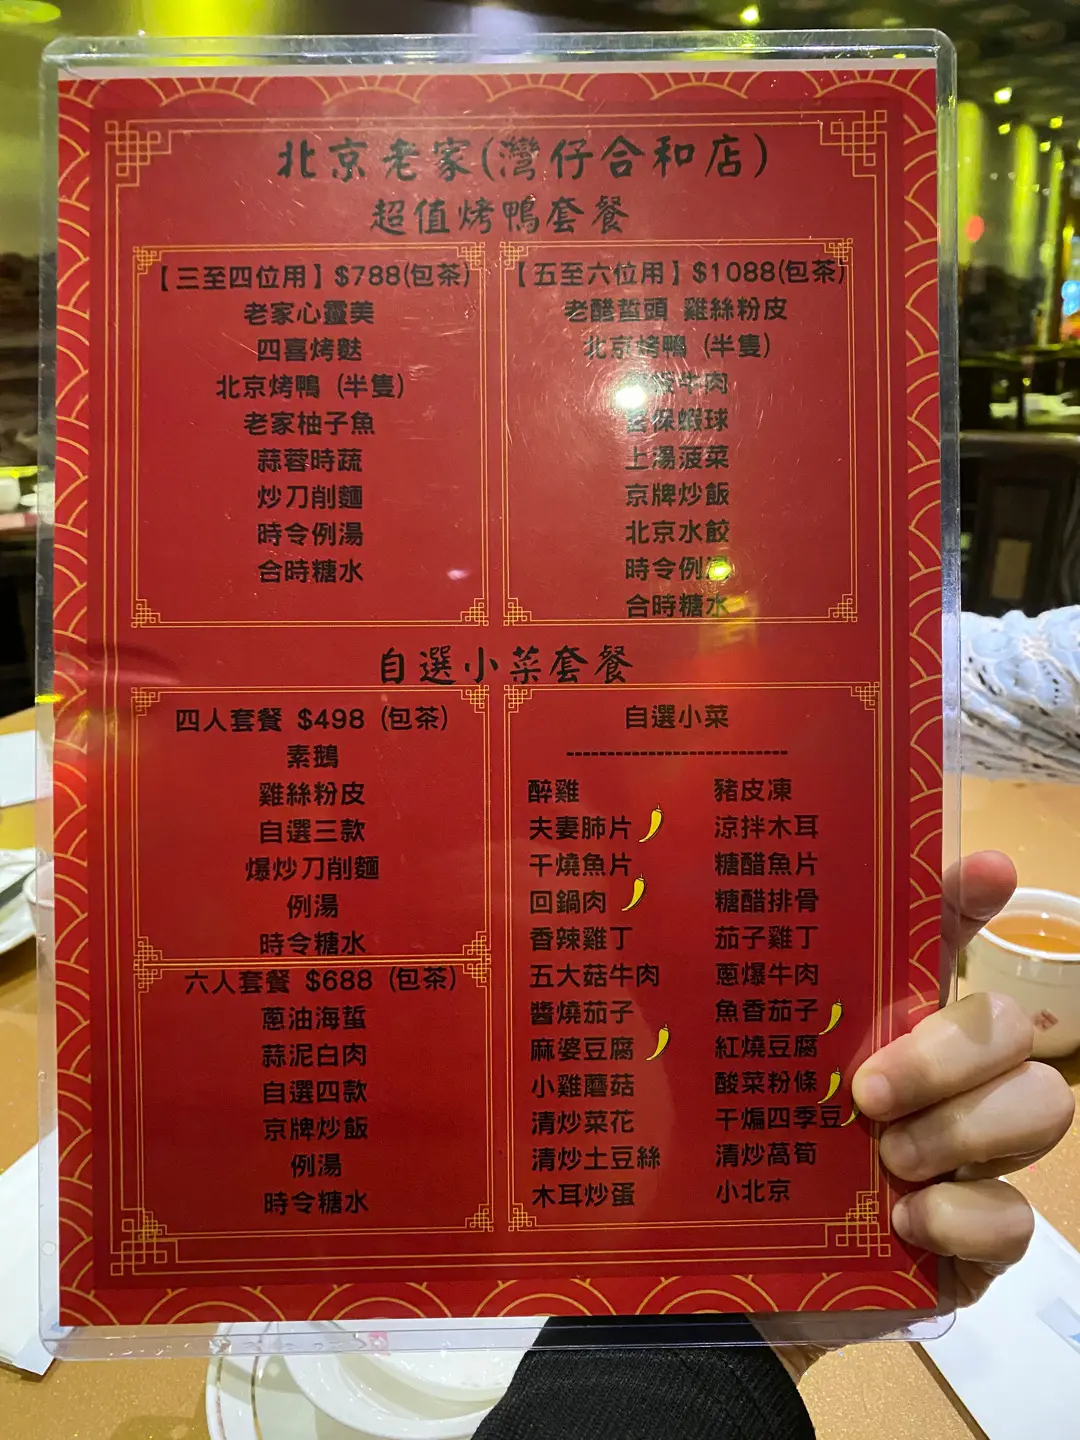 北京老家(灣仔合和店)
超值烤鴨套餐
【三至四位用】$788(包茶)
老家心靈美
四喜烤麩
北京烤鴨 (半隻)
老家柚子魚
蒜蓉時蔬
炒刀削麵
時令例湯
合時糖水
【五至六位用】$1088(包茶)
老醋蜇頭 雞絲粉皮
北京烤鴨 (半隻)
牛肉
保蝦球
上湯菠菜
京牌炒飯
北京水餃
時令例湯
合時糖水
自選小菜套餐
四人套餐 $498 (包茶)
素鵝
雞絲粉皮
自選三款
爆炒刀削麵
例湯
時令糖水
六人套餐 $688 (包茶)
蔥油海蜇
蒜泥白肉
自選四款
京牌炒飯
例湯
時令糖水
自選小菜
---------------------------
醉雞 豬皮凍
夫妻肺片 涼拌木耳
干燒魚片 糖醋魚片
回鍋肉 糖醋排骨
香辣雞丁 茄子雞丁
五大菇牛肉 蔥爆牛肉
醬燒茄子 魚香茄子
麻婆豆腐 紅燒豆腐
小雞蘑菇 酸菜粉條
清炒菜花 干煸四季豆
清炒土豆絲 清炒萵筍
木耳炒蛋 小北京